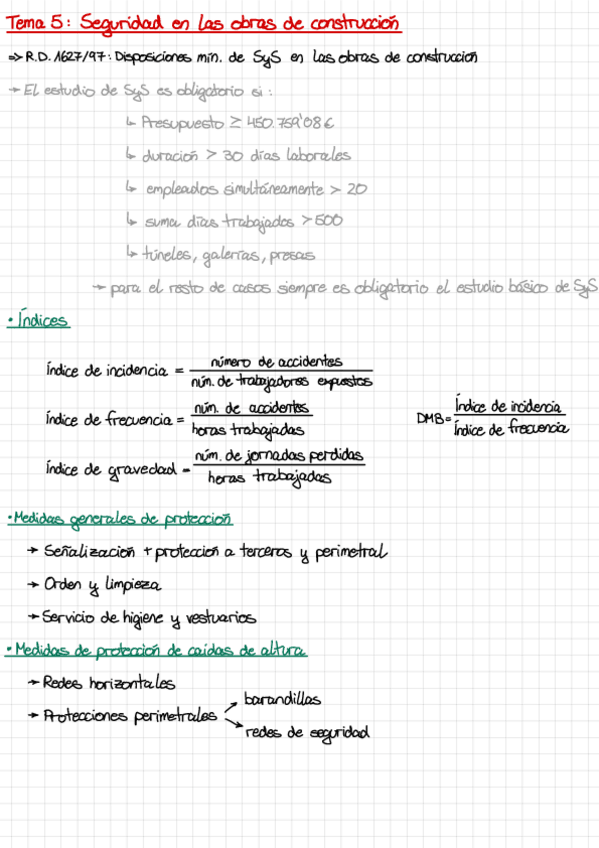 Tema 5: Seguridad en las obras de construcción
⇒ R.D. 1627/97: Disposiciones min. de SyS en las obras de construcción
→ El estudio de SyS es obligatorio si:
↳ Presupuesto ≥ 450.759'08 €
↳ duración > 30 días laborales
↳ empleados simultáneamente > 20
↳ suma días trabajados > 500
↳ túneles, galerías, presas
→ para el resto de casos siempre es obligatorio el estudio básico de SyS
• Índices
Índice de incidencia = número de accidentes / núm. de trabajadores expuestos
Índice de frecuencia = núm. de accidentes / horas trabajadas
DMB = Índice de incidencia / Índice de frecuencia
Índice de gravedad = núm. de jornadas perdidas / horas trabajadas
• Medidas generales de protección
→ Señalización + protección a terceros y perimetral
→ Orden y limpieza
→ Servicio de higiene y vestuarios
• Medidas de protección de caídas de altura
→ Redes horizontales
→ Protecciones perimetrales → barandillas
→ redes de seguridad